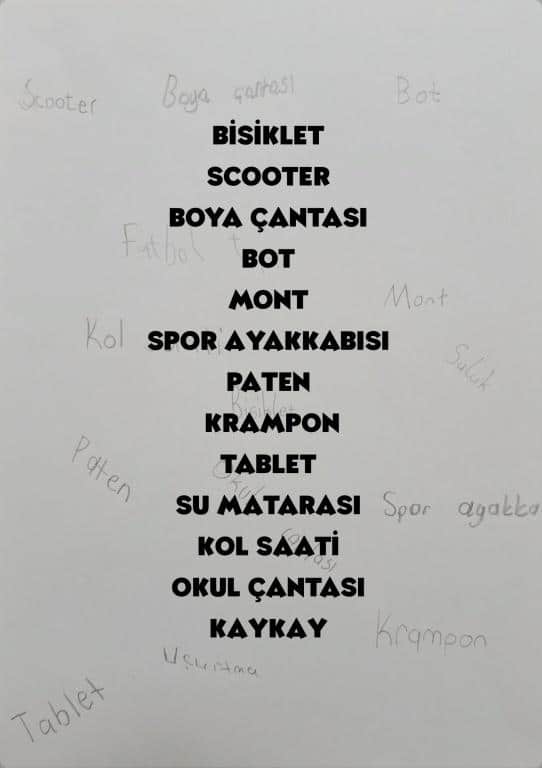 Scooter Boya çantası Bot
BİSİKLET
SCOOTER
BOYA ÇANTASI
Futbol
BOT
Mont
MONT
Kol
SPOR AYAKKABISI
Suluk
PATEN
Bisiklet
KRAMPON
Paten
TABLET
Okul
SU MATARASI
Spor ayakka
KOL SAATİ
çantası
OKUL ÇANTASI
KAYKAY
Krampon
Uçurtma
Tablet